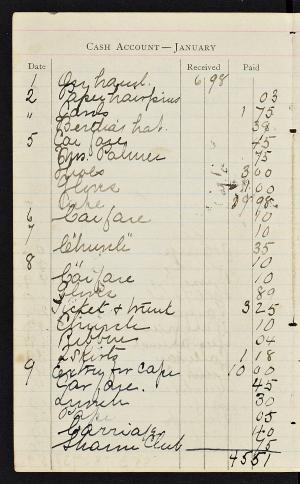 CASH ACCOUNT—JANUARY
Date Received Paid
1 On hand. 6 98
2 Paper hair pins 03
" 1 75
Bertha's hat. 38
5 Car fare 15
Mrs. Palmer 75
Shoes 3 00
Gloves 1 00
Cape 19 98
6 Car fare 10
7 10
"Church" 35
8 10
Car fare 10
Gloves 89
Ticket & 3 25
Church 10
Ribbon 04
2 Skirts 1 18
9 for Cape 10 00
Car fare. 45
Lunch 30
05
Carriage 40
Club 15
45 51